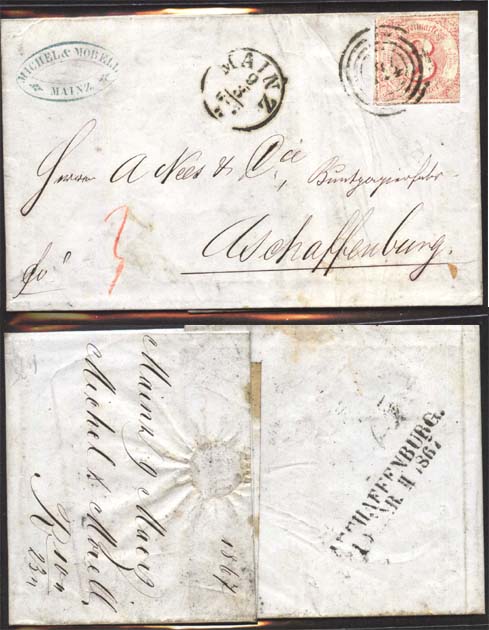 MICHEL & MORELL
MAINZ
MAINZ
9
Herrn A Nees & Cie, Buntpapierfabr
Aschaffenburg.
fro
Mainz 9 Maerz
Michel & Morell.
1867
ASCHAFFENBURG.
11 1867